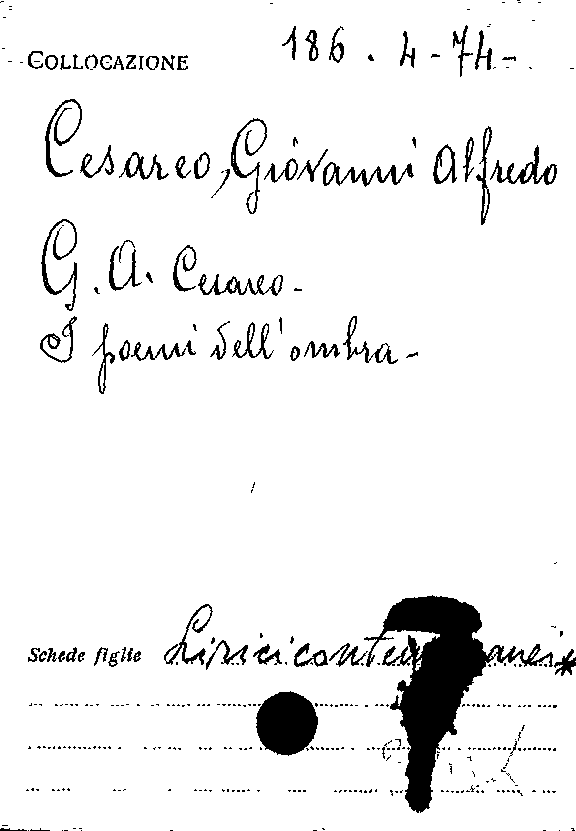 COLLOCAZIONE 186.4-74-
Cesareo, Giovanni Alfredo
G. A. Cesareo-
I poemi dell'ombra-
Schede figlie Lirici